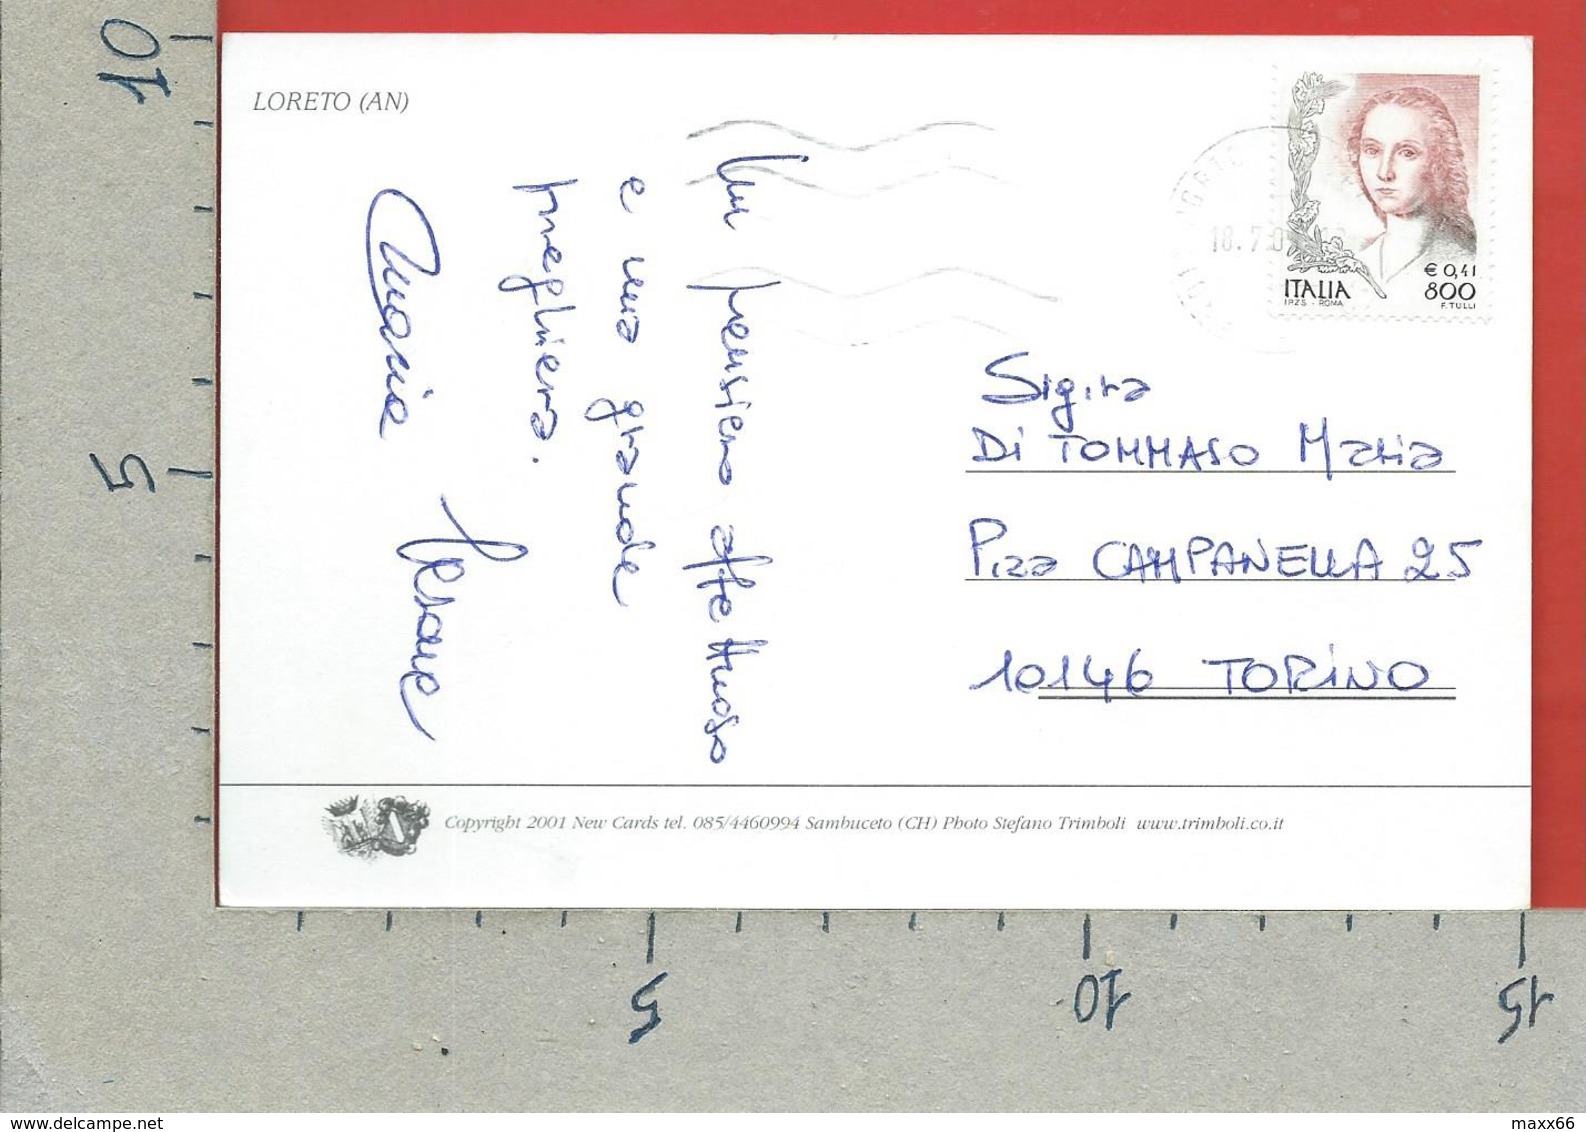 LORETO (AN)
Un pensiero affettuoso
e una grande
preghiera.
Maria
ITALIA
IPZS - ROMA
€ 0,41
800
F. TULLI
18.7.0
Sig.ra
Di TOMMASO Maria
P.zza CAMPANELLA 25
10146 TORINO
Copyright 2001 New Cards tel. 085/4460994 Sambuceto (CH) Photo Stefano Trimboli www.trimboli.co.it
10
5
5
10
15
delcampe.net
maxx66